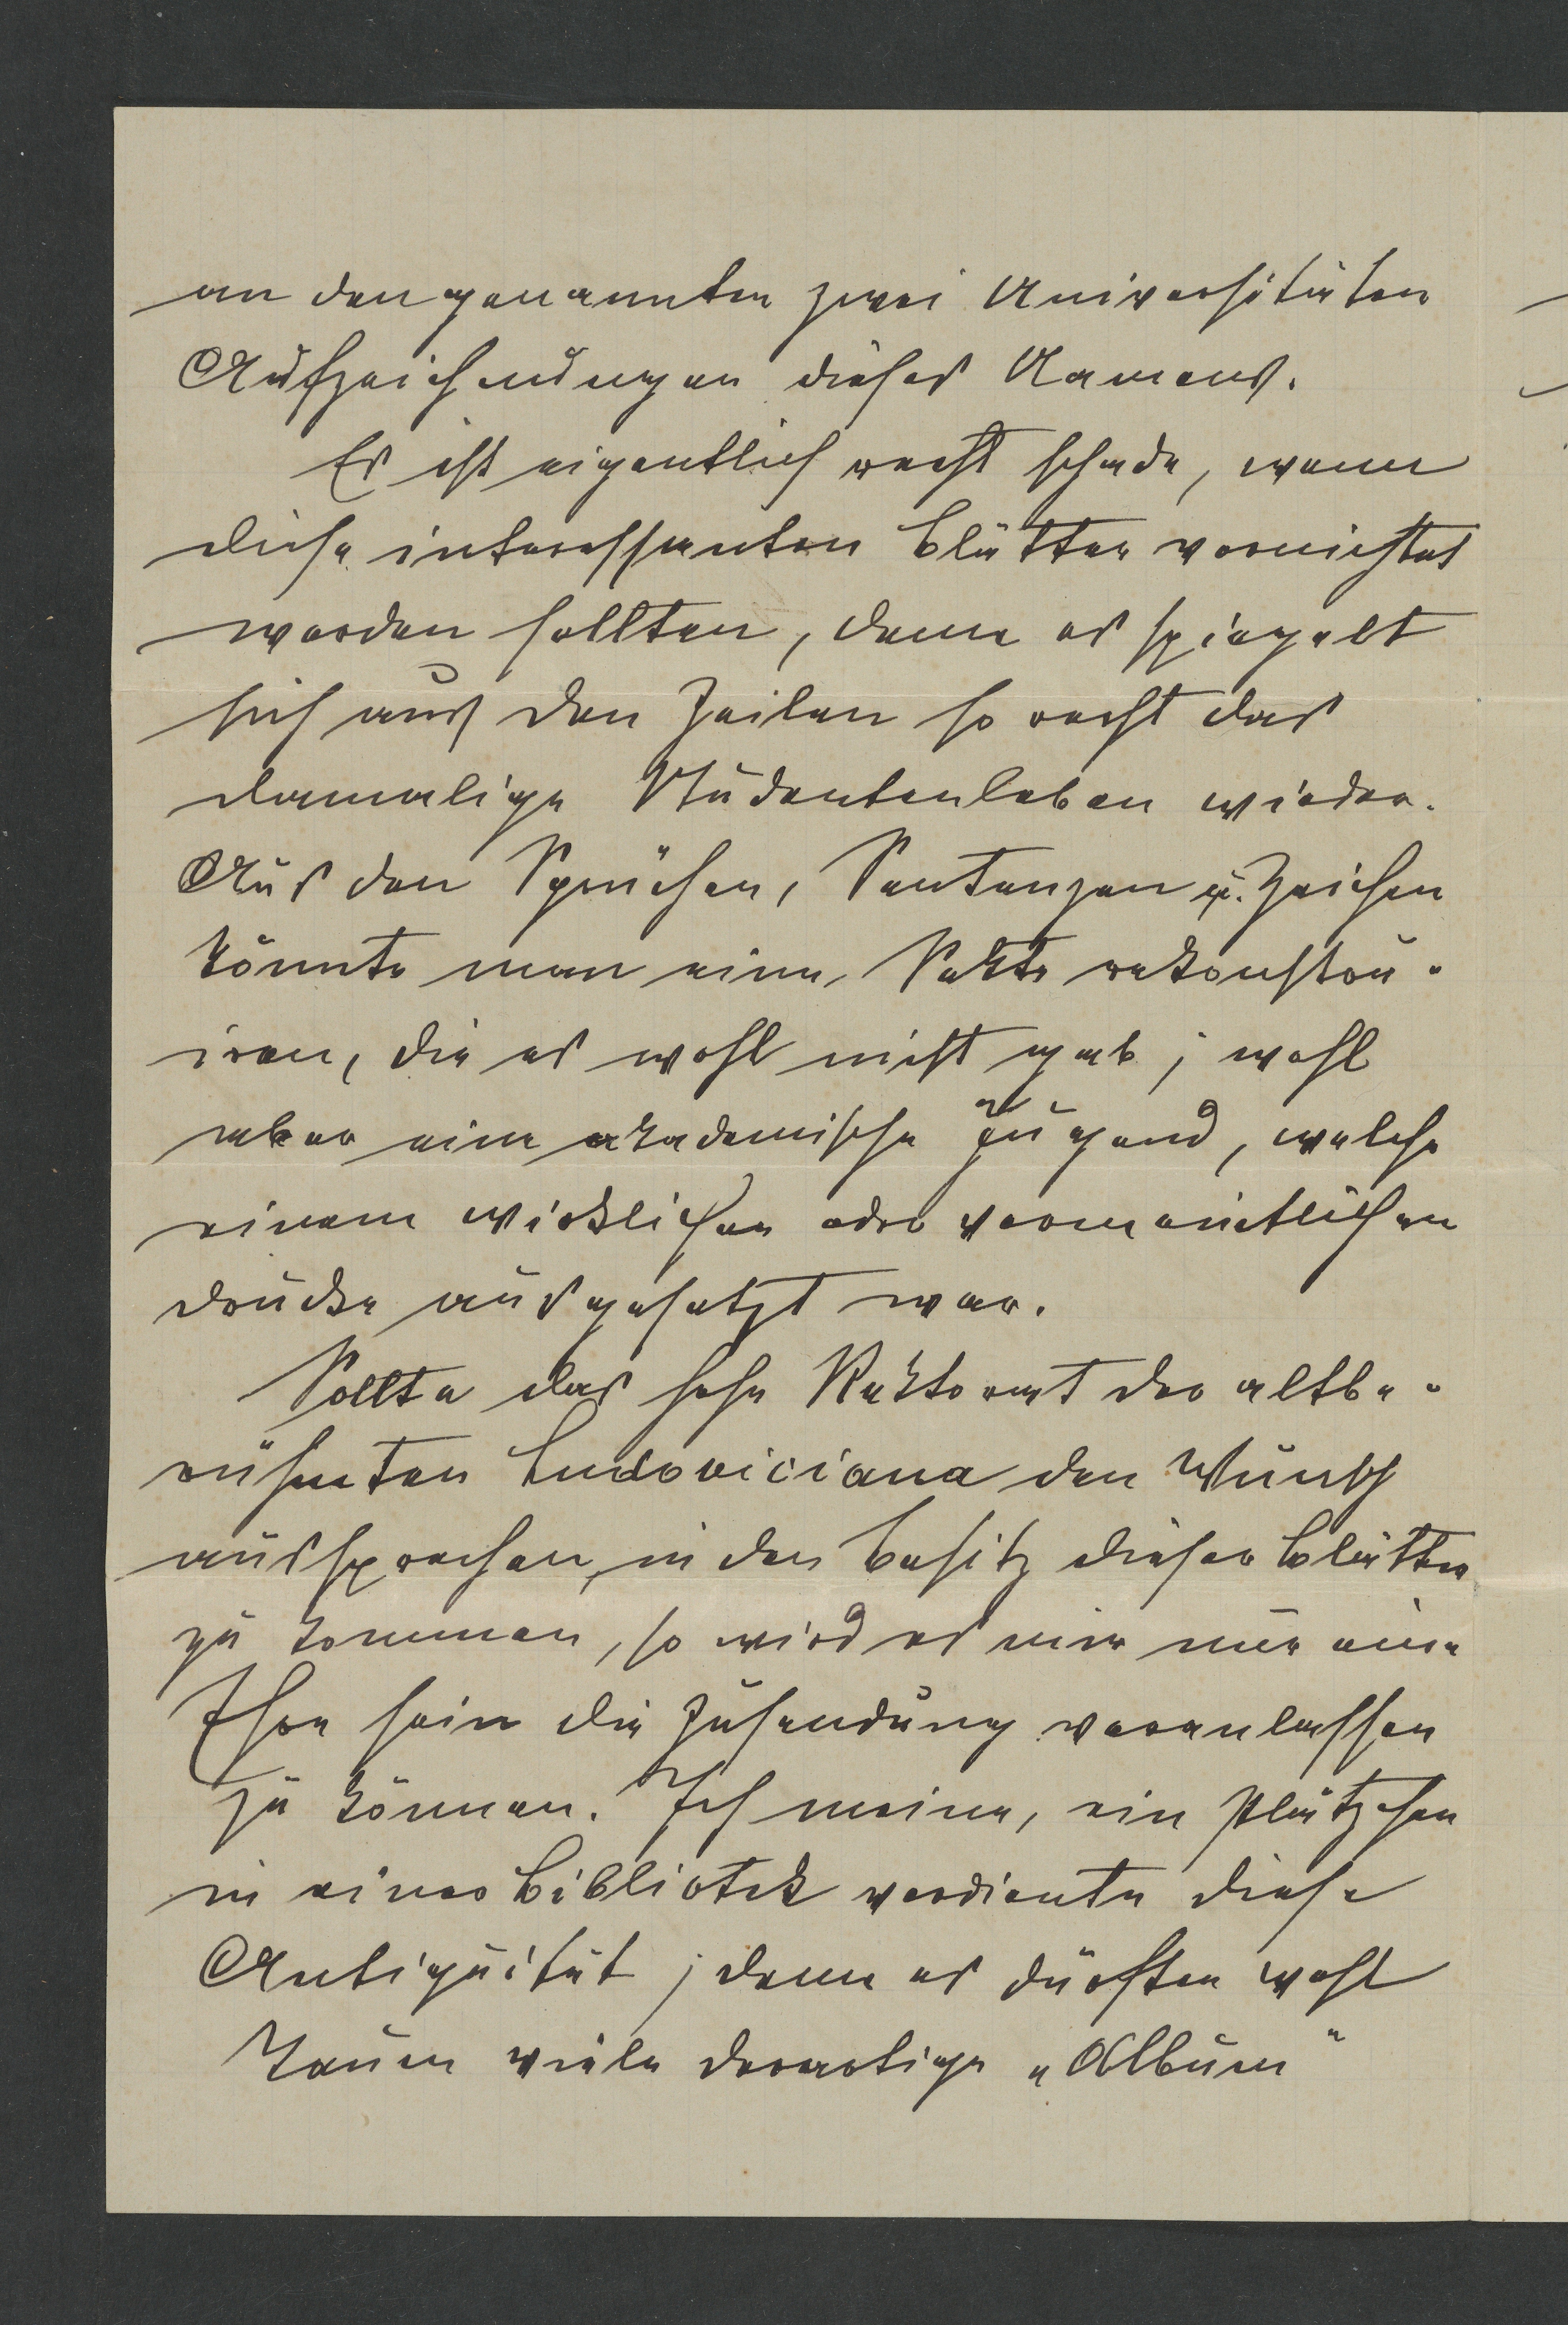 an den genannten zwei Universitäten
Aufzeichnungen dieses Namens.
Es ist eigentlich recht schade, wenn
diese interessanten Blätter vernichtet
werden sollten, denn es spiegelt
sich aus den Zeilen so recht das
damalige Studentenleben wieder.
Aus den Sprüchen, Sentenzen u. Zeichen
könnte man eine Sekte rekonstru-
iren, die es wohl nicht gab; wohl
aber eine akademische Jugend, welche
einem wirklichen oder vermeintlichen
Drucke ausgesetzt war.
Sollte das hohe Rektorat der altbe-
rühmten Ludoviciana den Wunsch
aussprechen, in den Besitz dieser Blätter
zu kommen, so wird es mir nur eine
Ehre sein die Zusendung veranlassen
zu können. Ich meine, ein Plätzchen
in einer Bibliotek verdiente diese
Antiquität; denn es dürften wohl
kaum viele derartige „Album"